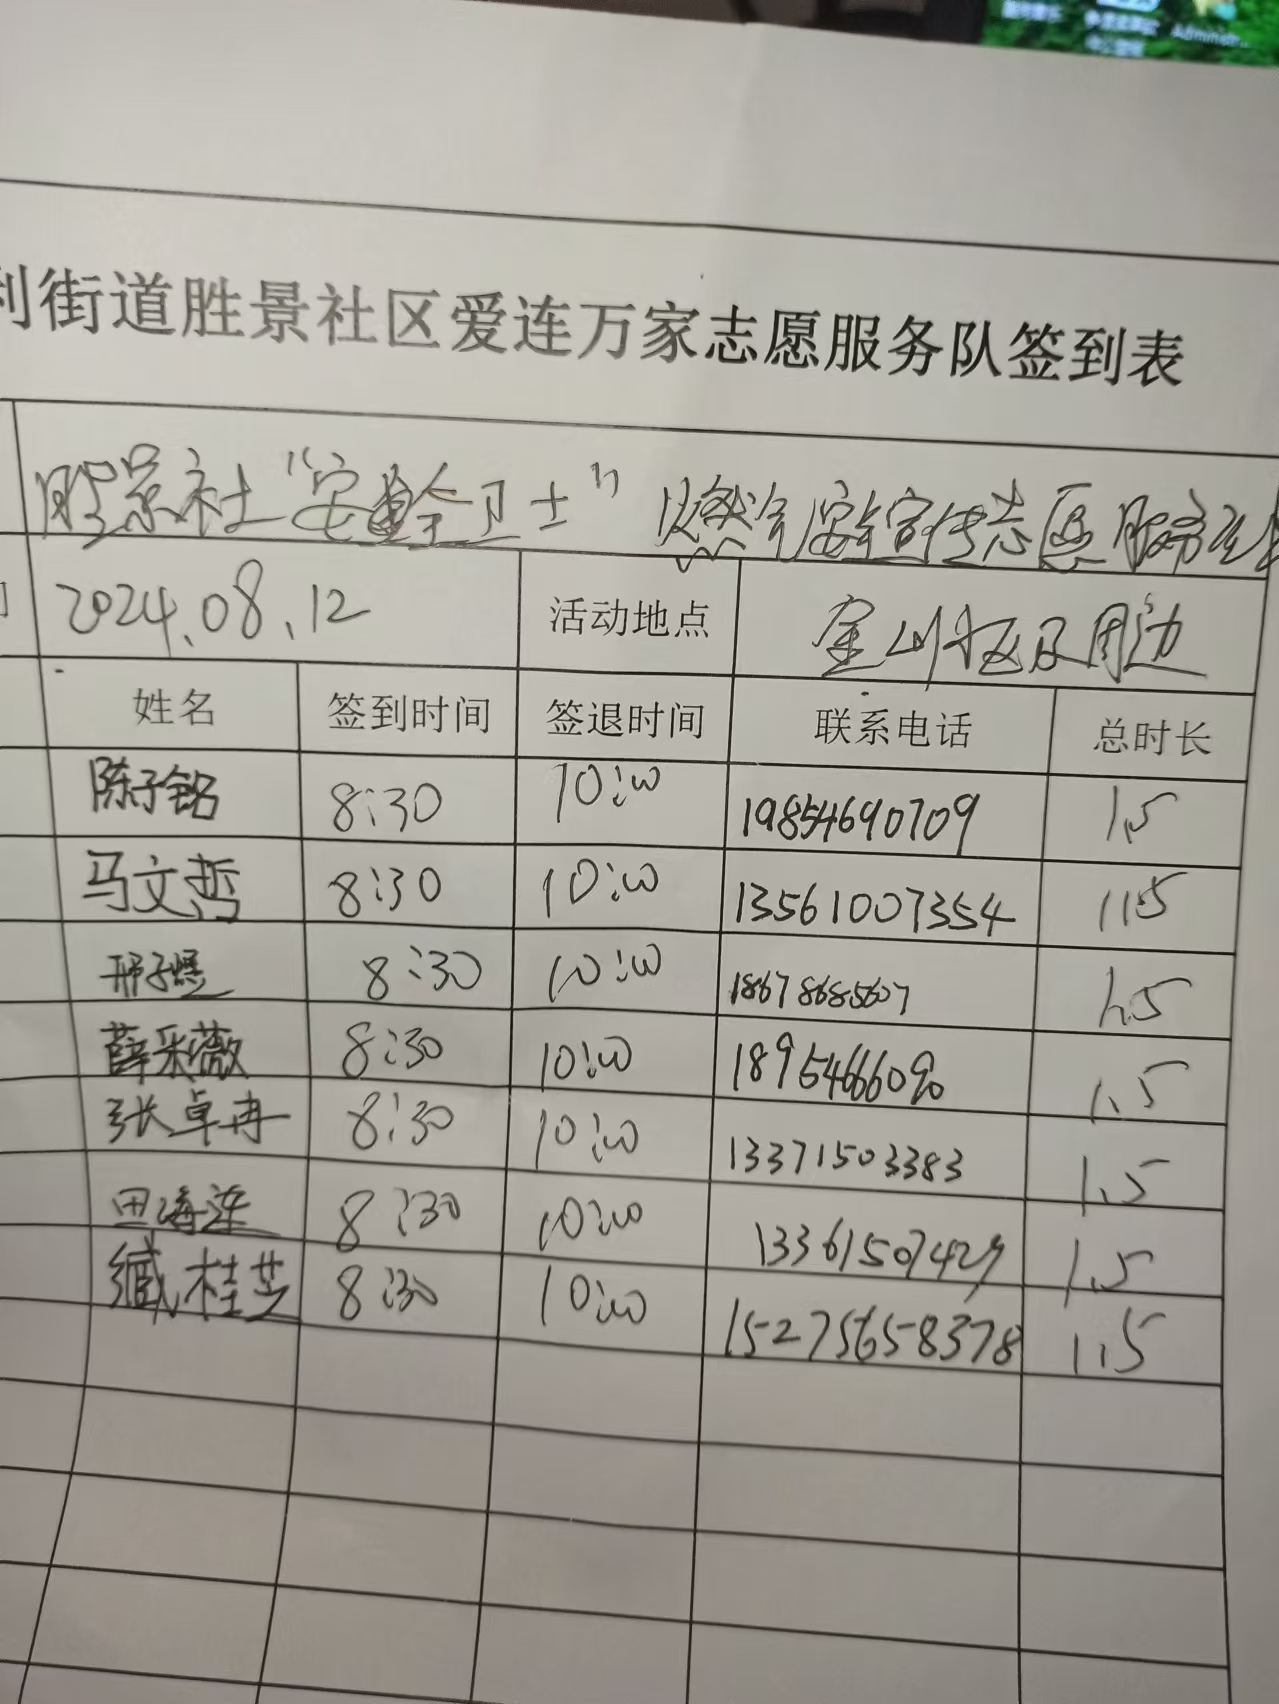 利街道胜景社区爱连万家志愿服务队签到表
胜景社"安全卫士"燃气安全宣传志愿服务
2024.08.12 活动地点 金川校区及周边
姓名 签到时间 签退时间 联系电话 总时长
陈子铭 8:30 10:00 19854690709 1.5
马文哲 8:30 10:00 13561007354 1.5
邢子煜 8:30 10:00 18678685607 1.5
薛采薇 8:30 10:00 18954666090 1.5
张卓冉 8:30 10:00 13371503383 1.5
田海莲 8:30 10:00 13361507427 1.5
臧桂芝 8:30 10:00 15275658378 1.5